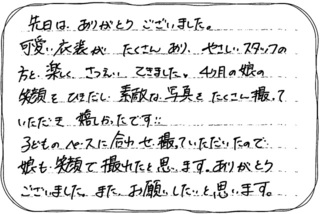 先日は、ありがとうございました。
可愛い衣装が たくさん あり、やさしいスタッフの
方と 楽しく さつえい できました。4ヶ月の娘の
笑顔を ひきだし 素敵な 写真を たくさん撮って
いただき 嬉しかったです!!
子どものペースに合わせ、撮っていただいたので
娘も笑顔で 撮れたと思います。ありがとう
ございました。また、お願いしたいと思います。